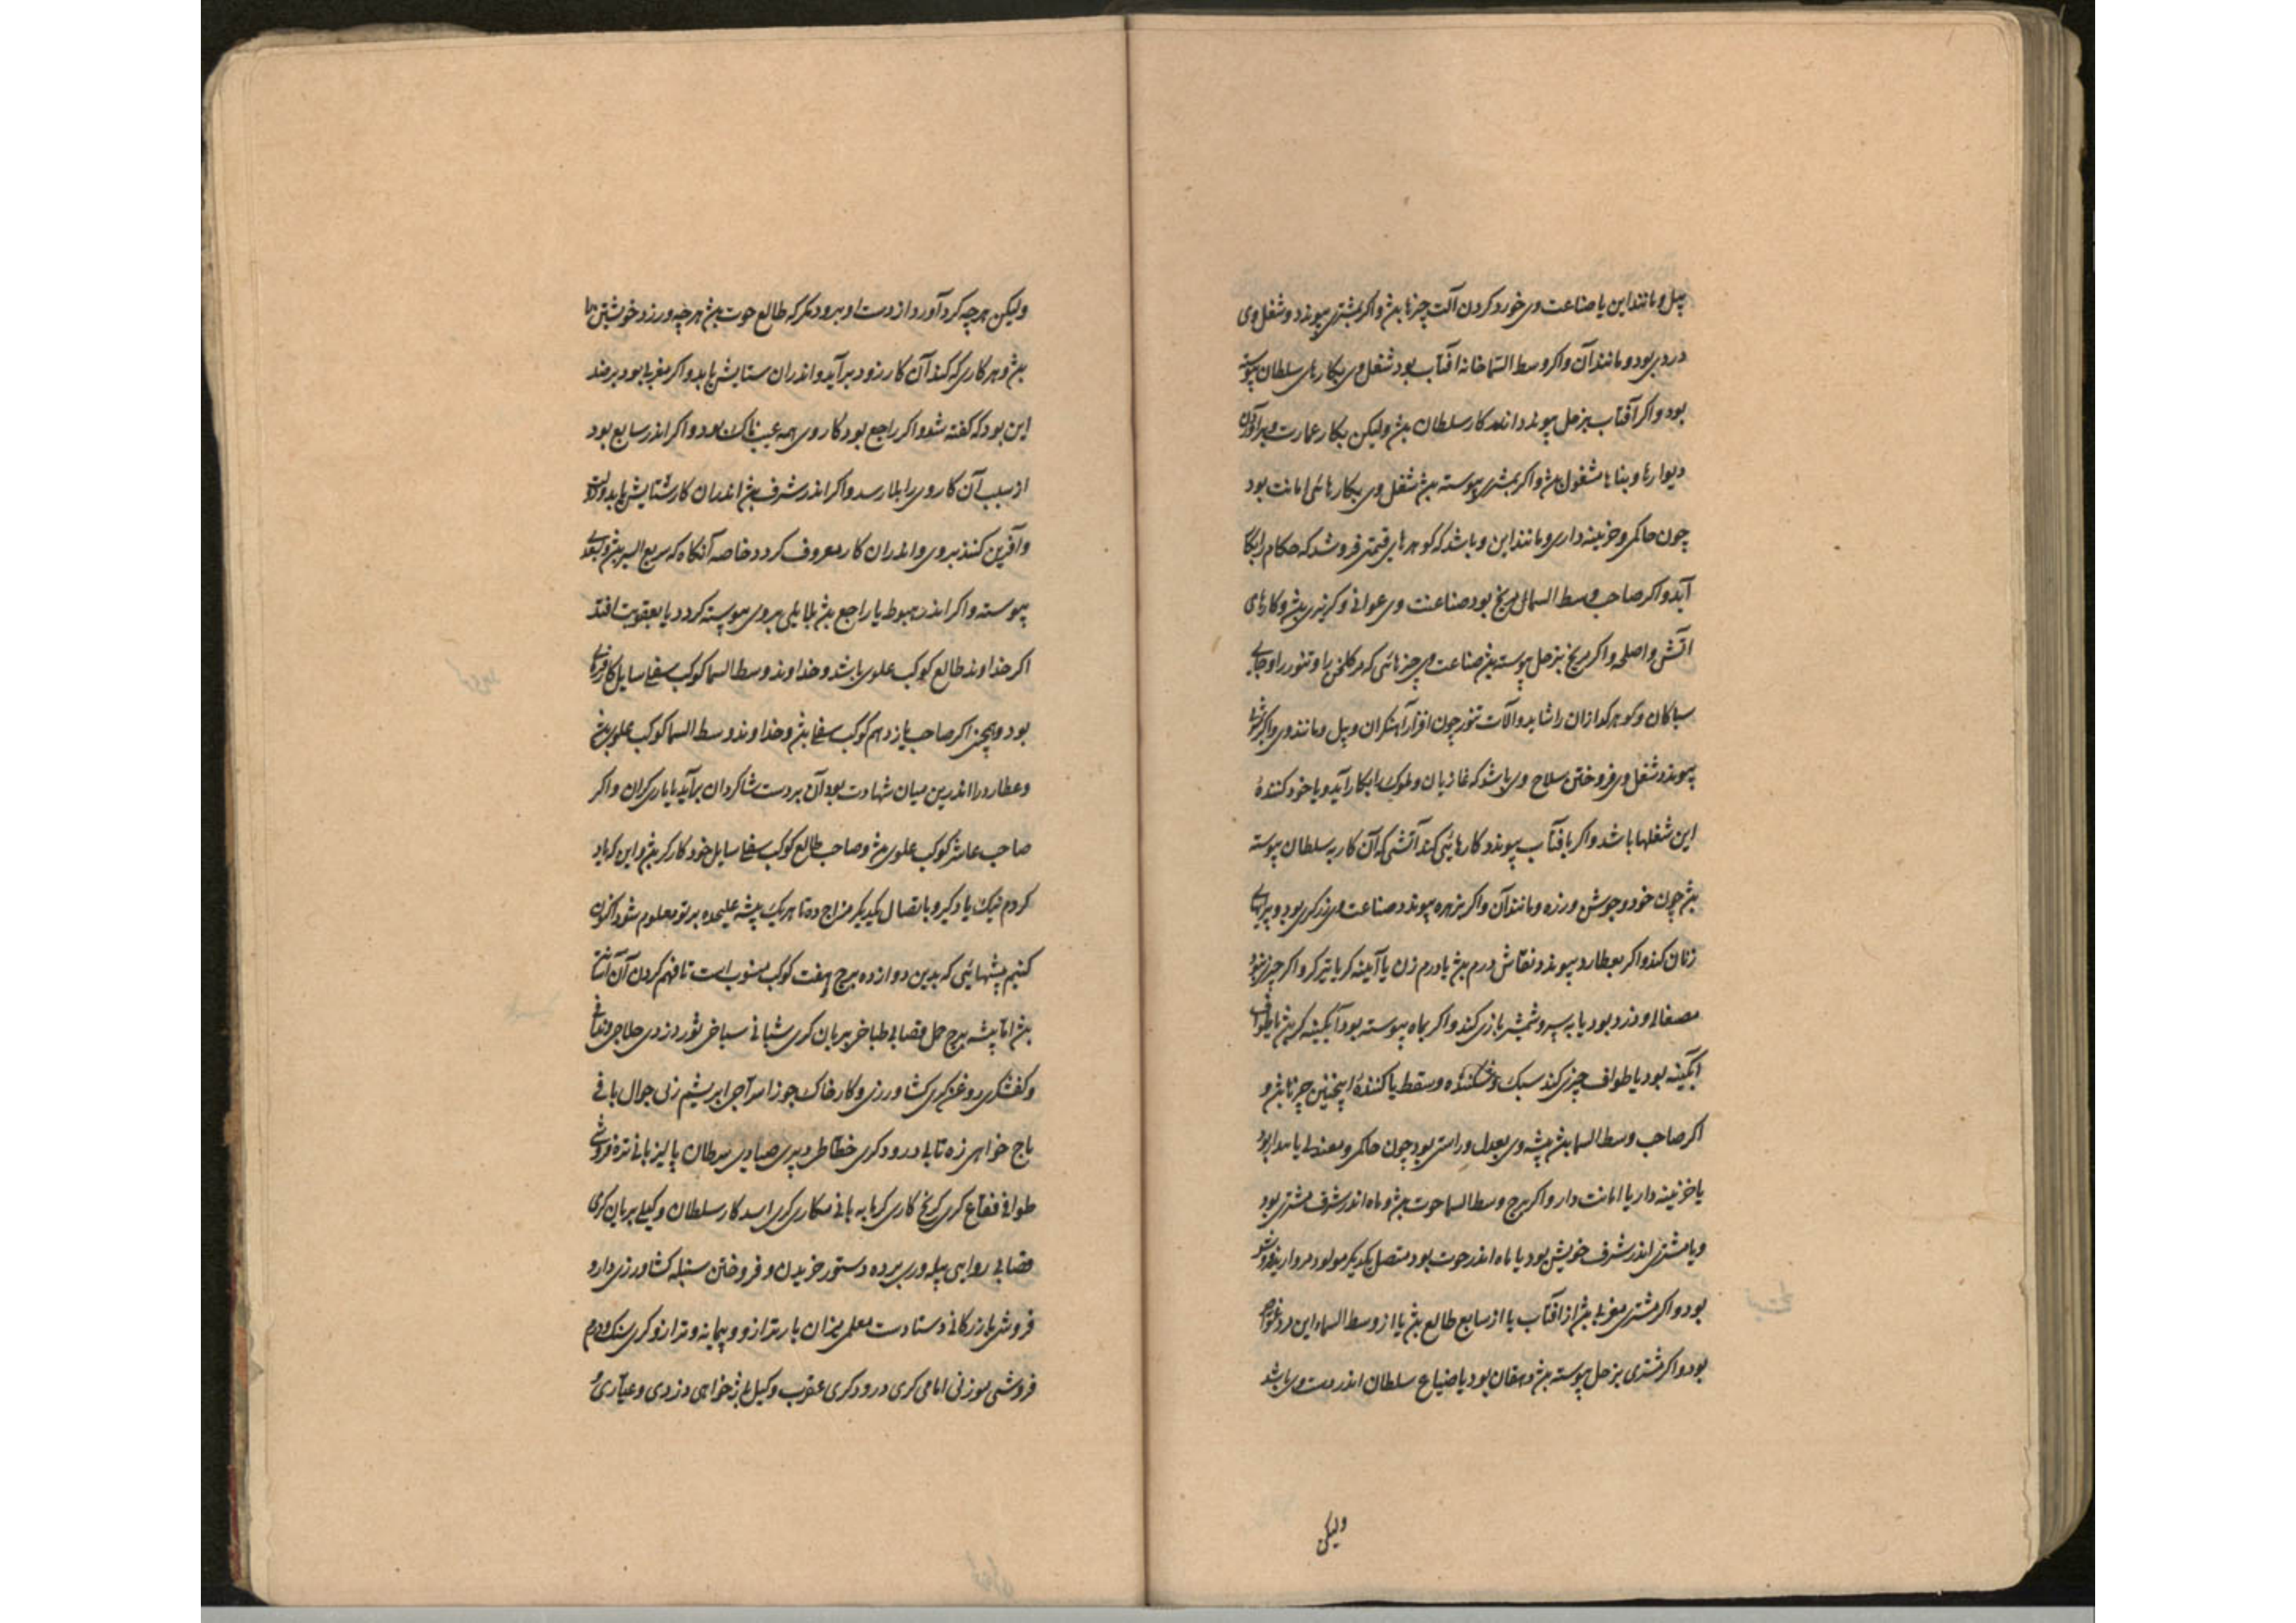 بیل و مانند این یا صناعت وی خورد کردن آلت چیزها بود و اگر بمشتری پیوندد شغل وی
بود و مانند آن و اگر وسط السما خانه آفتاب بود شغل وی بکارهای سلطان پیوسته
بود و اگر آفتاب بزحل پیوندد اندر کار سلطان باشد ولیکن بکار عمارت و برآوردن
دیوارها و بناها مشغول باشد و اگر بمشتری پیوسته باشد شغل وی بکارهائی امانت بود
چون حاکمی و خزینه داری و مانند این و باشد که گوهرهای قیمتی فروشد که حکام را بکار
آید و اگر صاحب وسط السما مریخ بود صناعت وی عوانی و بود و کارهای
آتش و اسلحه و اگر مریخ بزحل پیوسته باشد صناعت وی چیزهائی که گلخن را و تنور را و جای
سباکان و گوهرگدازان را شاید و آلات تنور چون افزار آهنگران و بیل و مانند وی و اگر بمشتری
پیوندد شغل وی فروختن سلاح وی باشد که غازیان و ملوک را بکار آید و یا خود کننده
این شغلها باشد و اگر بآفتاب پیوندد کارهائی کند آتشی که آن کار به سلطان پیوسته
باشد چون خود و جوشن و زره و مانند آن و اگر بزهره پیوندد صناعت وی زرگری بود و پیرایهای
زنان کند و اگر بعطارد پیوندد نقاش درم باشد یا درم زن یا آیینه گر یا تیرگر و اگر
بود یا به سپر و شمشیر بازی کند و اگر بماه پیوسته بود آبگینه گر باشد یا طواف
آبگینه بود یا طواف چیزی کند سبک و شکننده و سقط یا کننده اینچنین چیزها باشد و
اگر صاحب وسط السما باشد پیشه وی بعدل و راستی بود چون حاکمی و معدلی یا
یا خزینه دار یا امانت دار و اگر برج وسط السما حوت باشد و ماه اندر شرف مشتری بود
و یا مشتری اندر شرف خویش بود یا ماه اندر حوت بود متصل یکدیگر مولود مروارید فروش
بود و اگر مشتری مغربی باشد از آفتاب یا از سابع طالع باشد یا از وسط السماء این مرد غواص
بود و اگر مشتری بزحل پیوسته باشد دهقان بود یا ضیاع سلطان اندر دست وی باشد
ولیکن
ولیکن هرچه گرد آورد از دست او برود مگر که طالع حوت باشد هرچه ورزد خویشتن را
باشد و هر کاری که کند آن کار زود برآید و اندران ستایش یابد و اگر مغربی بود برضد
این بود که گفته شد و اگر راجع بود کار وی همه عیب ناک بود و اگر اندر سابع بود
از سبب آن کار وی را بلا رسد و اگر اندر شرف باشد اندران کار ستایش یابد
و آفرین کنند بروی و اندران کار معروف گردد خاصه آنگاه که سریع السیر باشد و بسعدی
پیوسته و اگر اندر هبوط یا راجع باشد بلائی بروی پیوسته گردد یا بعقوبت افتد
اگر خداوند طالع کوکب علوی باشد و خداوند وسط السما کوکب سفلی سایل کارفرمای
بود و همچنین اگر صاحب یازدهم کوکب سفلی باشد و خداوند وسط السما کوکب علوی باشد
و عطارد را اندرین میان شهادت بود آن بر دست شاگردان برآید یا یاری گران و اگر
صاحب عاشر کوکب علوی باشد و صاحب طالع کوکب سفلی سایل خود کارگر باشد و این که یاد
کردم نیک یاد گیر و باتصال یکدیگر مزاج ده تا هر یک پیشه علیحده بر تو معلوم شود اکنون
کنیم پیشهائی که بدین دوازده برج هفت کوکب منسوب است تا فهم کردن آن آسان
باشد اما پیشه برج حمل قصابی طباخی بریان گری شبانی سباخی ثور دزدی حلاجی
و کفشگری روغن گری کشاورزی و کار خاک جوزا سراجی ابریشم زنی جوال بافی
باج خواهی زه تابی درودگری خطاطی دبیری صیادی سرطان پالیزبانی تره فروشی
طوافی فقاع گری گچ کاری گرمابه بانی گری اسد کار سلطان وکیلی بریان گری
قصابی پیله وری برده دستور خریدن و فروختن سنبله کشاورزی دارو
فروشی بازرگانی معلمی میزان بار ترازو و پیمانه و ترازوگری سنک
فروشی موزنی امامی گری درودگری عقرب وکیلی خواهی دزدی و عیاری